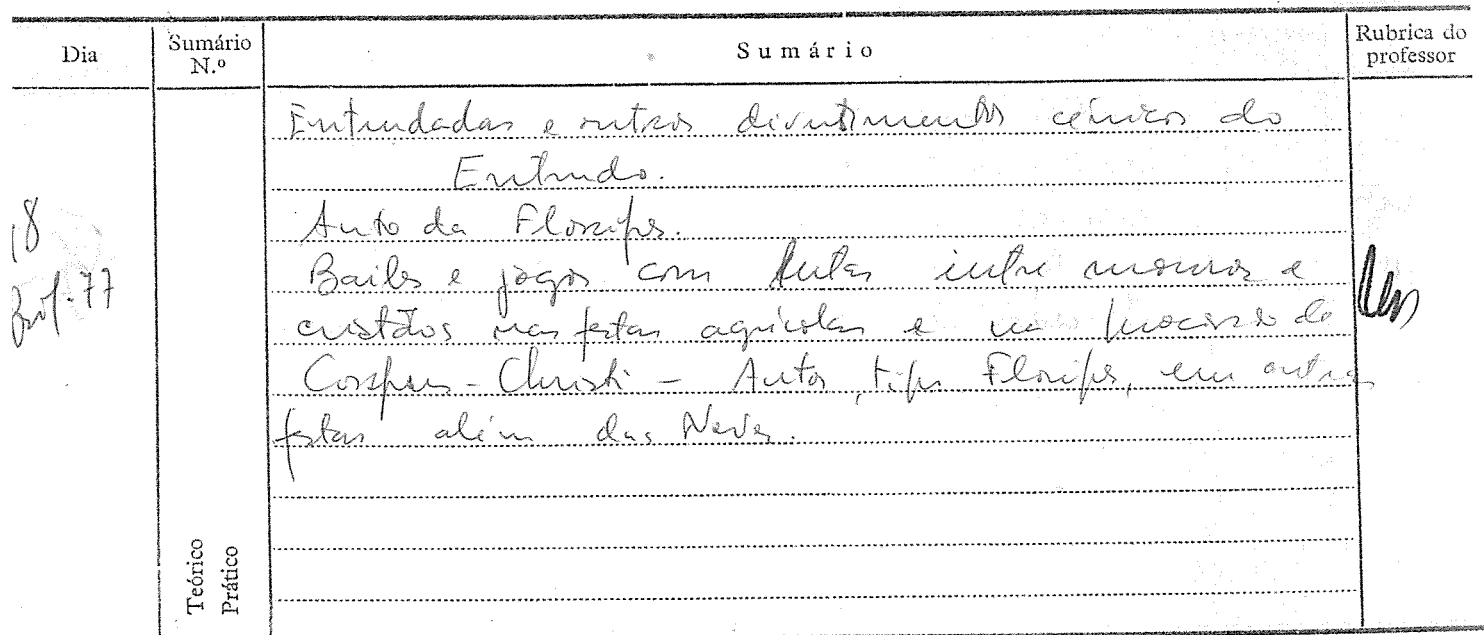 Dia
Sumário N.º
Sumário
Rubrica do professor
18
77
Entrudadas e outros divertimentos cénicos do
Entrudo.
Auto da Floripes.
Bailes e jogos com lutas entre mouros e
cristãos nas festas agrícolas e na procissão de
Corpus-Christi - Autos, tipo Floripes, em outras
festas além das Neves.
Teórico
Prático